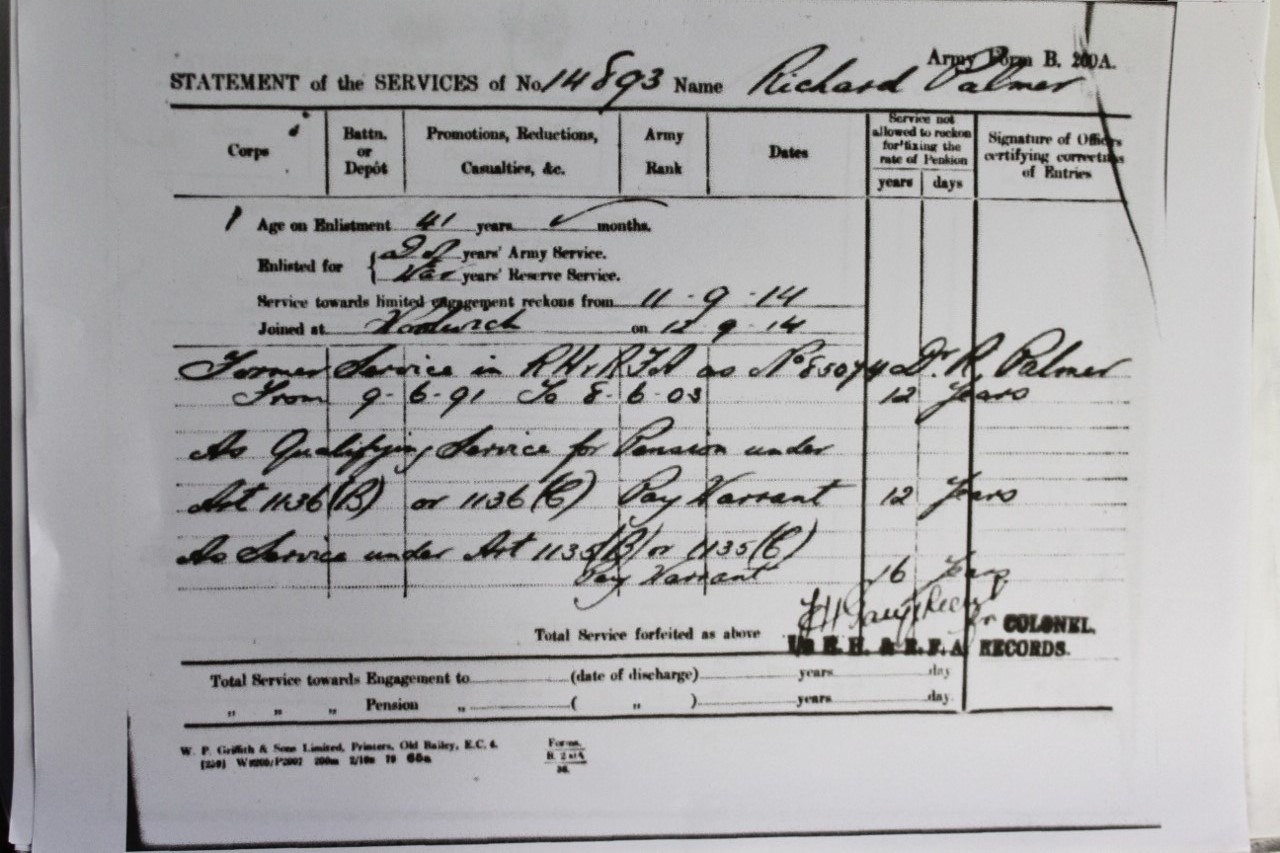 Army Form B. 200A.
STATEMENT of the SERVICES of No. 14893 Name Richard Palmer
Corps
Battn. or Depôt
Promotions, Reductions, Casualties, &c.
Army Rank
Dates
Service not allowed to reckon for fixing the rate of Pension
years days
Signature of Officers certifying correctness of Entries
Age on Enlistment 41 years months.
Enlisted for
years' Army Service.
War years' Reserve Service.
Service towards limited engagement reckons from 11-9-14
Joined at Woolwich on 12 9-14
Former Service in RH & RFA as No 85074 Dr. R. Palmer
From 9-6-91 To 8-6-03 12 Years
As Qualifying Service for Pension under
Art 1136 (B) or 1136 (C) Pay Warrant 12 Years
As Service under Art 1135 (B) or 1135 (C)
Pay Warrant 16 Years
for COLONEL.
Total Service forfeited as above
R. H. & R. F. A. RECORDS.
Total Service towards Engagement to (date of discharge) years day
„ „ „ Pension „ ( „ ) years day
W. P. Griffith & Sons Limited, Printers, Old Bailey, E.C. 4.
Forms